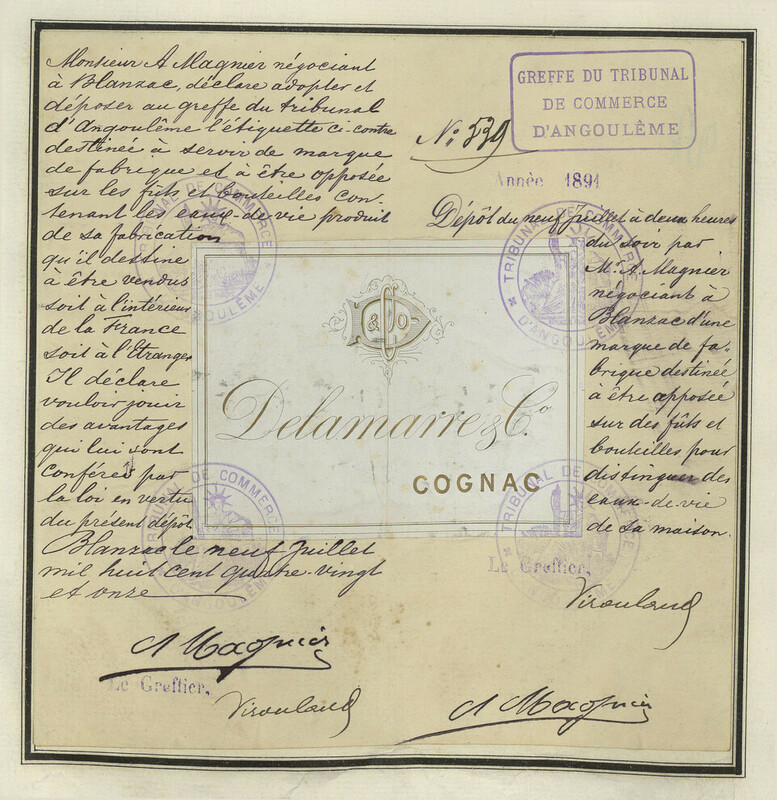 Monsieur A Magnier négociant
à Blanzac, déclare adopter et
déposer au greffe du tribunal
d'Angoulême l'étiquette ci-contre
destinée à servir de marque
de fabrique et à être opposée
sur les fûts et bouteilles con-
tenant les eaux-de-vie produit
de sa fabrication
qu'il dessine
à être vendus
soit à l'intérieur
de la France
soit à l'Etranger
Il déclare
vouloir jouir
des avantages
qui lui sont
conférés par
la loi en vertu
du présent dépôt.
Blanzac le neuf Juillet
mil huit cent quatre-vingt
et onze
A Magnier
Le Greffier,
GREFFE DU TRIBUNAL
DE COMMERCE
D'ANGOULÊME
No 539
Année 1891
Dépôt du neuf Juillet à deux heures
du soir par
Mr. A. Magnier
négociant à
Blanzac d'une
marque de fa-
brique destinée
à être apposée
sur des fûts et
bouteilles pour
distinguer des
eaux-de-vie
de sa maison.
Le Greffier,
A Magnier
D & Co
Delamarre & Co.
COGNAC
TRIBUNAL DE COMMERCE
D'ANGOULÊME
TRIBUNAL DE COMMERCE
D'ANGOULÊME
TRIBUNAL DE COMMERCE
D'ANGOULÊME
TRIBUNAL DE COMMERCE
D'ANGOULÊME